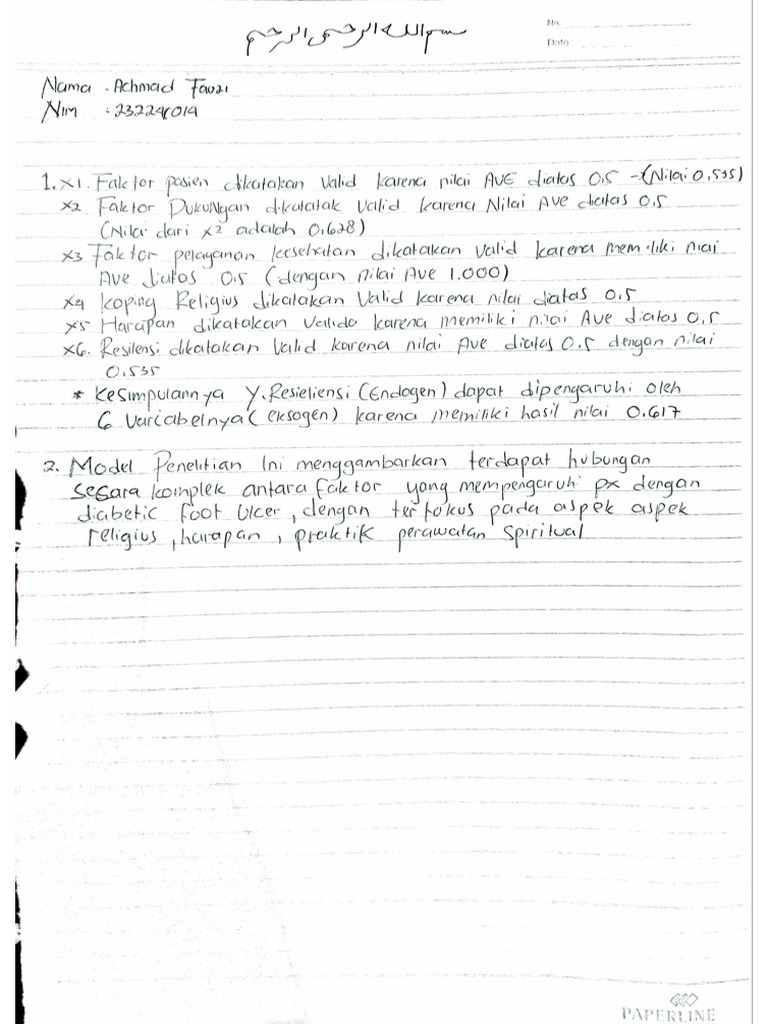 بسم الله الرحمن الرحيم
No.
Date
Nama : Achmad Fauzi
Nim : 232241014
1. X1. Faktor pasien dikatakan Valid karena nilai AVE diatas 0.5 → (Nilai 0.535)
X2 Faktor Dukungan dikatatak Valid karena Nilai Ave diatas 0.5
(Nilai dari X2 adalah 0.628)
X3 Faktor pelayanan kesehatan dikatakan valid karena memiliki nilai
Ave diatas 0.5 (dengan nilai Ave 1.000)
X4 Koping Religius dikatakan Valid karena nilai diatas 0.5
X5 Harapan dikatakan Valido karena memiliki nilai Ave diatas 0.5
X6. Resilensi dikatakan Valid karena nilai Ave diatas 0.5 dengan nilai
0.535
* Kesimpulannya Y. Resieliensi (Endogen) dapat dipengaruhi oleh
6 Variabelnya (eksogen) karena memiliki hasil nilai 0.617
2. Model Penelitian Ini menggambarkan terdapat hubungan
secara komplek antara faktor yang mempengaruhi px dengan
diabetic foot Ulcer, dengan terfokus pada aspek aspek
religius, harapan, praktik perawatan Spiritual
PAPERLINE